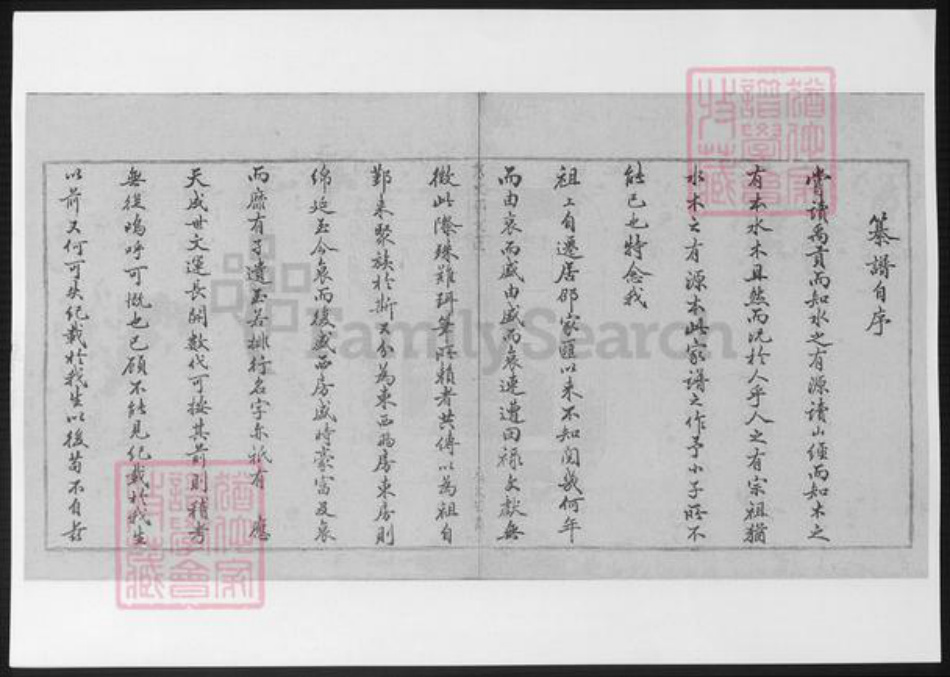 纂譜自序
嘗讀禹貢而知水之有源讀山經而知木之
有本水木且然而况於人乎人之有宗祖猶
水木之有源本此家譜之作予小子所不
能已也特念我
祖上自遷居邵家匯以來不知閱幾何年
而由衰而盛由盛而衰連遭回祿文獻無
徵此際殊難珥筆所賴者共傳以為祖自
鄞來聚族於斯又分為東西兩房東房則
綿延至今衰而復盛西房盛時豪富及衰
而靡有孑遺至若排行名字亦祇有 應
天成世文運長開數代可按其前則稽考
無從嗚呼可慨也已顧不能見紀載於我生
以前又何可失紀載於我生以後苟不自
FamilySearch
猶他家
譜學會
收藏
猶他家
譜學會
收藏